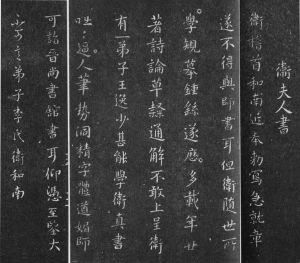 衛夫人書
衛稽首和南近奉勑寫急就章
遂不得與師書耳但衛隨世所
學規摹鍾繇遂歷多載年廿
著詩論草隸通解不敢上呈衛
有一弟子王逸少甚能學衛真書
咄〻逼人筆勢洞精字體遒媚師
可詣晉尚書館書耳仰憑至鑒大
不可言弟子李氏衛和南